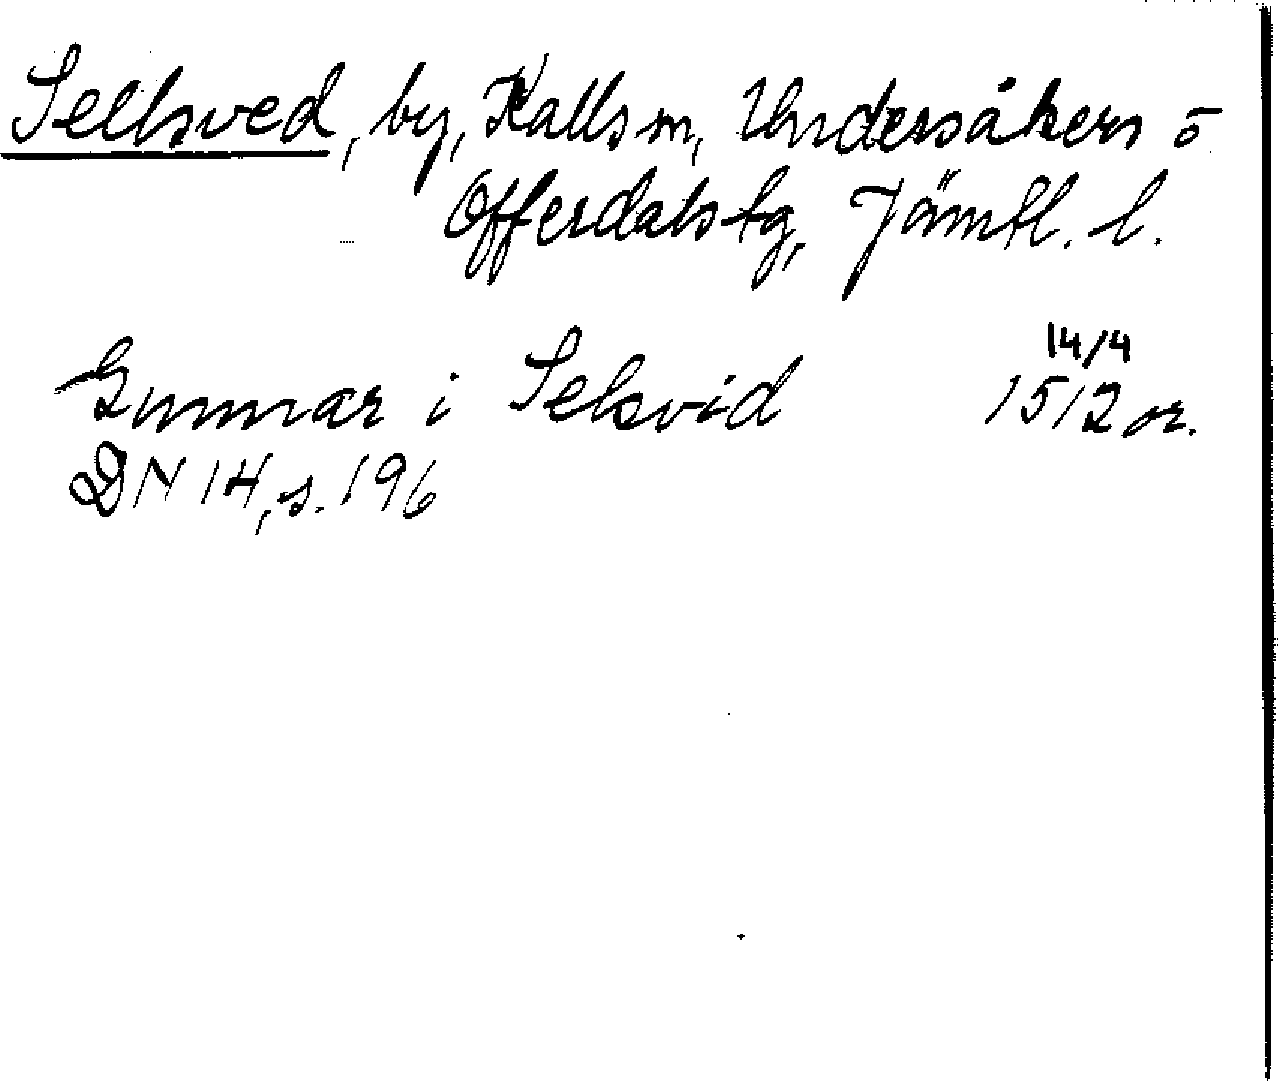 Sellsved, by, Kalls sn, Undersåkers o
Offerdals tg, Jämtl. l.
Gunnar i Selsvid 14/4 1512 or.
DN 14, s. 196